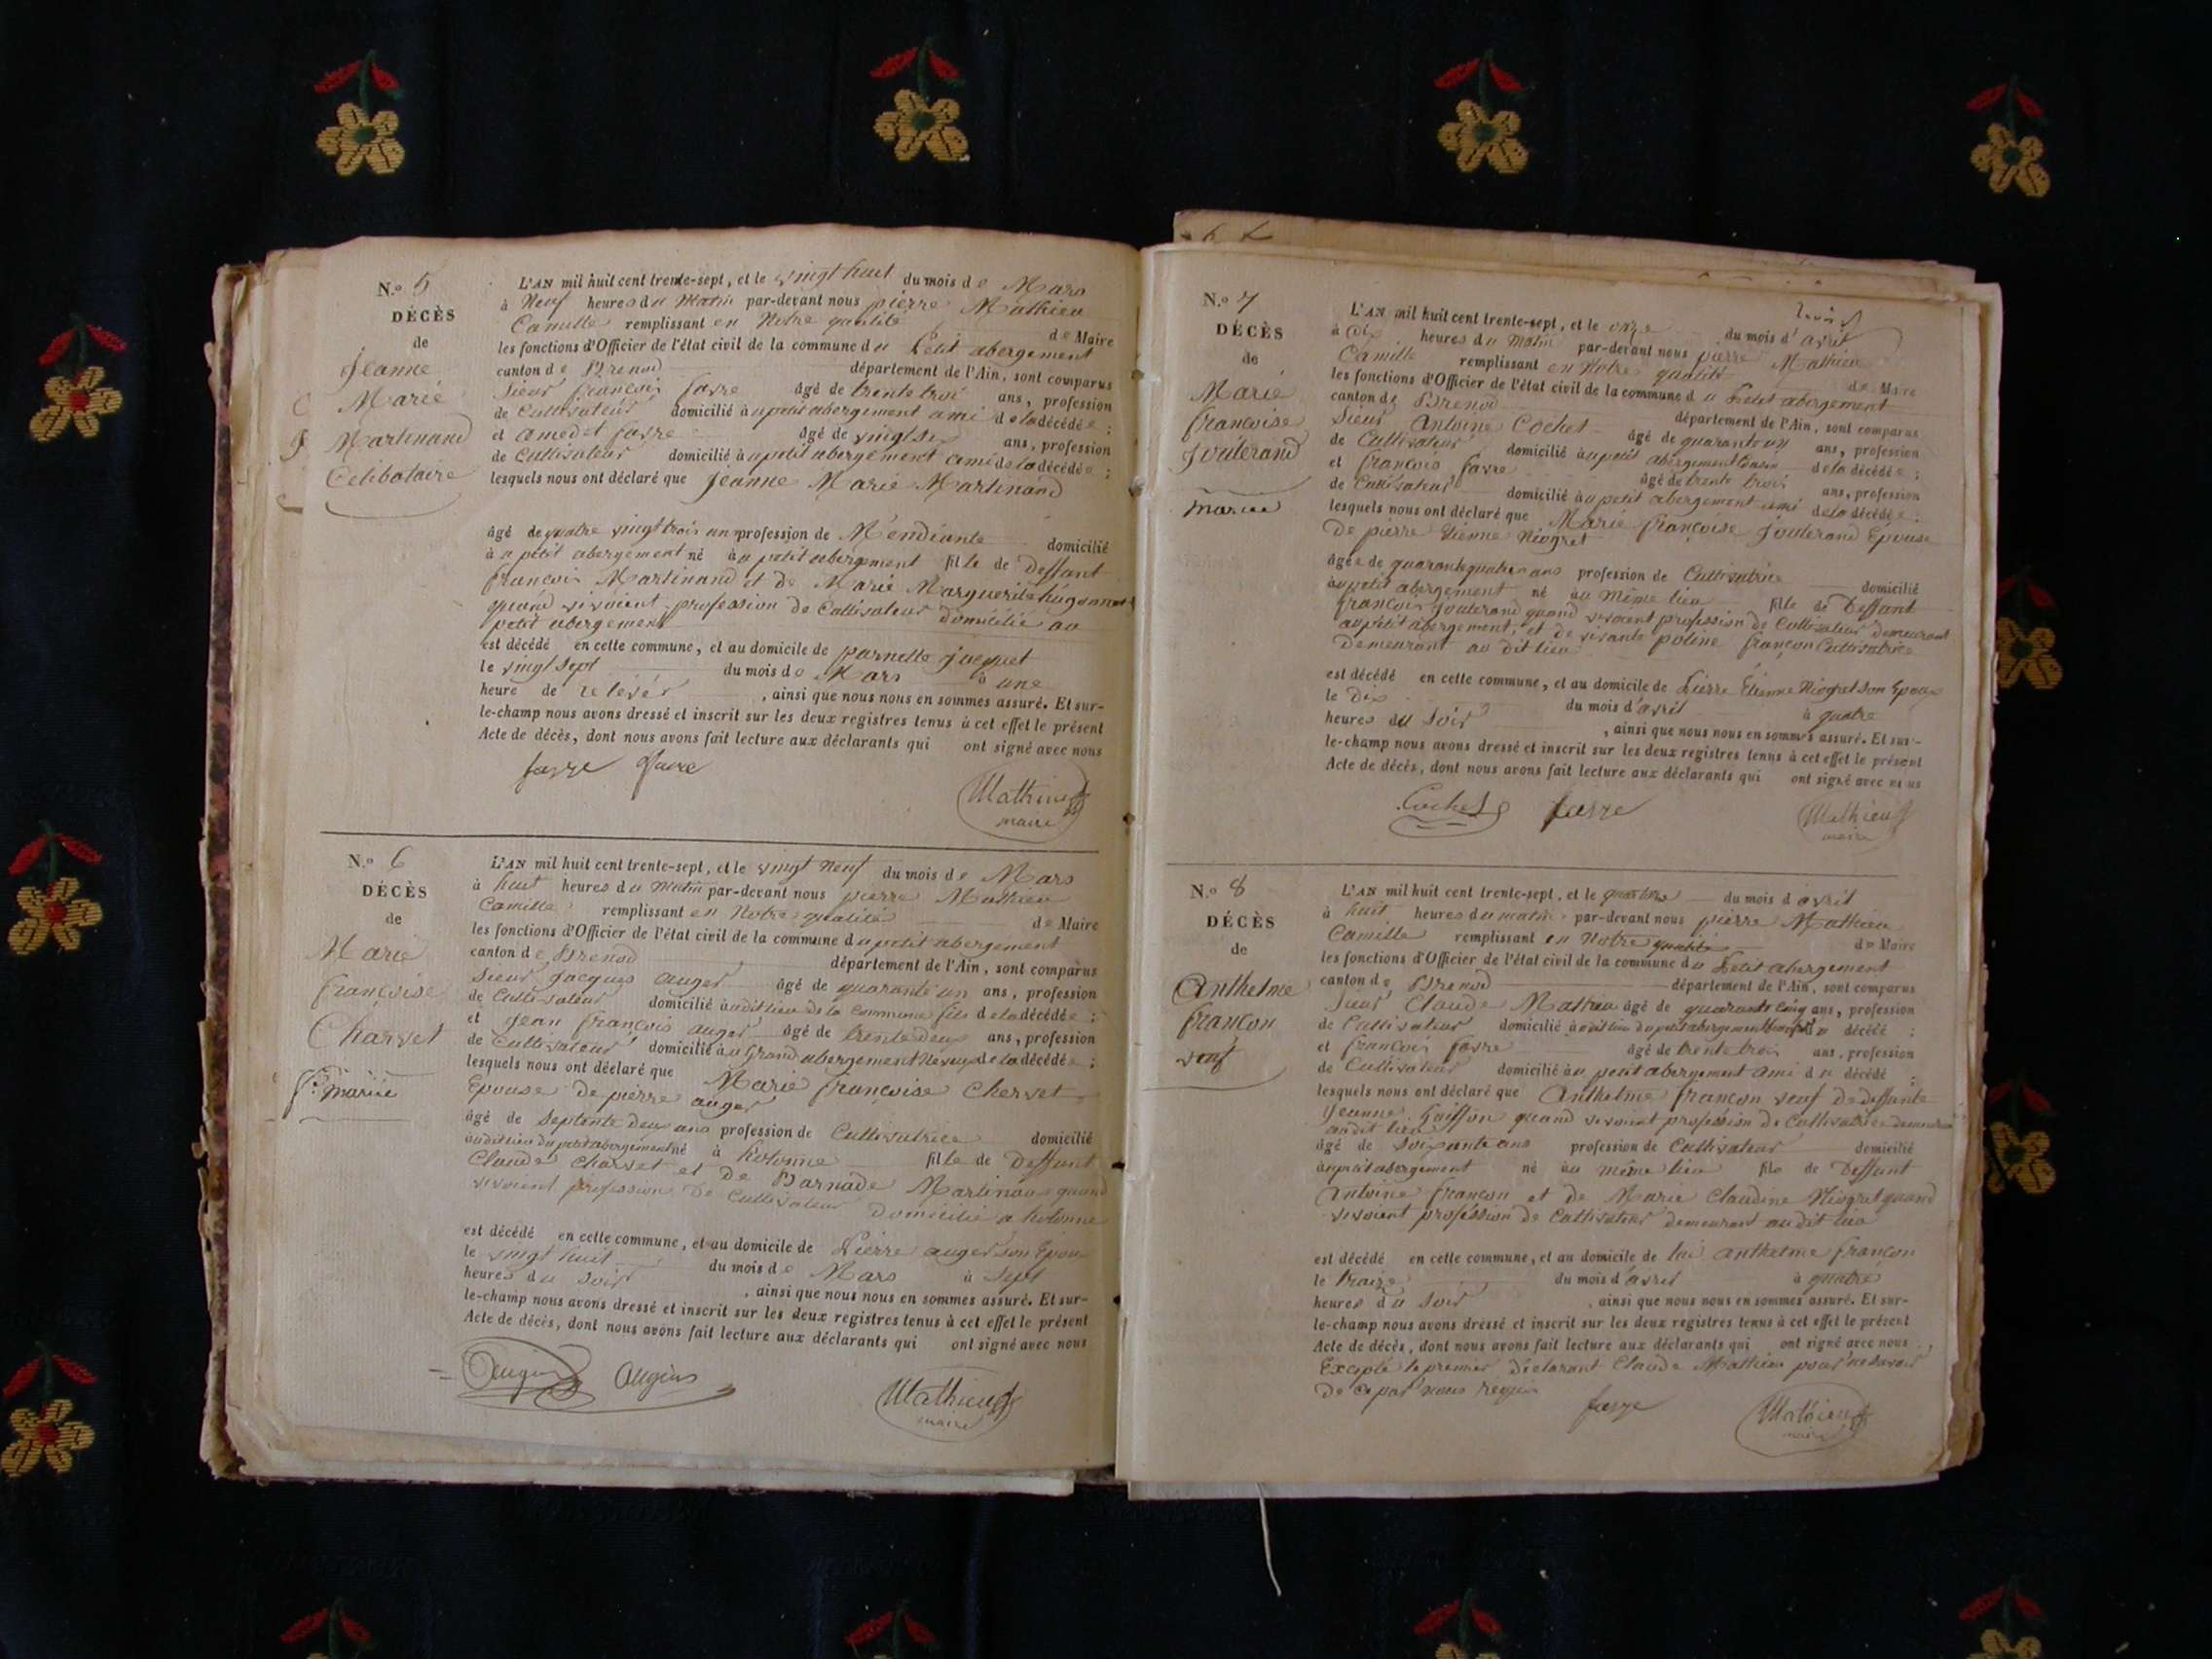 N.° 5
DÉCÈS
de
Jeanne
Marie
Martinand
Celibataire
L'AN mil huit cent trente-sept, et le vingt huit du mois de Mars
à Neuf heures du Matin par-devant nous pierre Mathieu
Camille remplissant en Notre qualité de Maire
les fonctions d'Officier de l'état civil de la commune du Petit abergement
canton de Brenod département de l'Ain, sont comparus
Sieur françois favre âgé de trente troi ans, profession
de Cultivateur domicilié au petit abergement ami de la décédée ;
et amedet favre âgé de vingt six ans, profession
de Cultivateur domicilié au petit abergement ami de la décédée ;
lesquels nous ont déclaré que Jeanne Marie Martinand
âgé de quatre vingt trois an profession de Mendiante domicilié
à u petit abergement né au petit abergement fille de Deffunt
françois Martinand et de Marie Marguerite hugonnet
quand vivoient profession de Cultivateur domicilié au
petit abergement
est décédé en cette commune, et au domicile de parnette jacquet
le vingt sept du mois de Mars à une
heure de relevér, ainsi que nous nous en sommes assuré. Et sur-
le-champ nous avons dressé et inscrit sur les deux registres tenus à cet effet le présent
Acte de décès, dont nous avons fait lecture aux déclarants qui ont signé avec nous
favre favre
Mathieu
maire
N.° 6
DÉCÈS
de
Marie
françoise
Charvet
mariée
L'AN mil huit cent trente-sept, et le vingt Neuf du mois de Mars
à huit heures du Matin par-devant nous pierre Mathieu
Camille remplissant en Notre qualité de Maire
les fonctions d'Officier de l'état civil de la commune du petit abergement
canton de Brenod département de l'Ain, sont comparus
Sieur Jacques auger âgé de quarante un ans, profession
de Cultivateur domicilié audit lieu de la Commune fils de la décédée ;
et Jean françois auger âgé de trente deux ans, profession
de Cultivateur domicilié au Grand abergement Neveu de la décédée ;
lesquels nous ont déclaré que Marie françoise Chervet
Epouse de pierre auger
âgé de Septente deux ans profession de Cultivatrice domicilié
audit lieu du petit abergement né à hotonne fille de Deffunt
Claude Charvet et de Barnade Martinand quand
vivoient profession De Cultivateur domicilié a hotonne
est décédé en cette commune, et au domicile de Pierre auger son Epoux
le vingt huit du mois de Mars à Sept
heures du Soir, ainsi que nous nous en sommes assuré. Et sur-
le-champ nous avons dressé et inscrit sur les deux registres tenus à cet effet le présent
Acte de décès, dont nous avons fait lecture aux déclarants qui ont signé avec nous
Mathieu
maire
N.° 7
DÉCÈS
de
Marie
françoise
Jouterand
mariée
L'AN mil huit cent trente-sept, et le onze du mois d'avril
à Dix heures du Matin par-devant nous pierre Mathieu
Camille remplissant en Notre qualité de Maire
les fonctions d'Officier de l'état civil de la commune du Petit abergement
canton de Brenod département de l'Ain, sont comparus
Sieur Antoine Cochet âgé de quarante un ans, profession
de Cultivateur domicilié au petit abergement Cousin de la décédée ;
et françois favre âgé de trente trois ans, profession
de Cultivateur domicilié au petit abergement ami de la décédée ;
lesquels nous ont déclaré que Marie françoise Jouterand Epouse
De pierre Etienne Niogret
âgée de quarante quatre ans profession de Cultivatrice domicilié
au petit abergement né au Même lieu fille de Deffunt
françois Jouterand quand vivoient profession de Cultivateur demeurant
au petit abergement, et de vivante poline françon Cultivatrice
Demeurant au dit lieu
est décédé en cette commune, et au domicile de Pierre Etienne Niogret son Epoux
le Dix du mois d'avril à quatre
heures du Soir, ainsi que nous nous en sommes assuré. Et sur-
le-champ nous avons dressé et inscrit sur les deux registres tenus à cet effet le présent
Acte de décès, dont nous avons fait lecture aux déclarants qui ont signé avec nous
Cochet favre
Mathieu
maire
N.° 8
DÉCÈS
de
Anthelme
françon
veuf
L'AN mil huit cent trente-sept, et le quatorze du mois d'avril
à huit heures du matin par-devant nous pierre Mathieu
Camille remplissant en Notre qualité de Maire
les fonctions d'Officier de l'état civil de la commune du Petit abergement
canton de Brenod département de l'Ain, sont comparus
Sieur Claude Mathieu âgé de quarante Cinq ans, profession
de Cultivateur domicilié audit lieu du petit abergement décédé ;
et françois favre âgé de trente trois ans, profession
de Cultivateur domicilié au petit abergement ami du décédé ;
lesquels nous ont déclaré que Anthelme françon veuf de deffunte
Jeanne quand vivoient profession de Cultivatrice demeurant
audit lieu
âgé de Soixante ans profession de Cultivateur domicilié
au petit abergement né au même lieu fils de Deffunt
Antoine françon et de Marie Claudine Niogret quand
vivoient profession de Cultivateur demeurant audit lieu
est décédé en cette commune, et au domicile de lui anthelme françon
le traize du mois d'avril à quatre
heures du Soir, ainsi que nous nous en sommes assuré. Et sur-
le-champ nous avons dressé et inscrit sur les deux registres tenus à cet effet le présent
Acte de décès, dont nous avons fait lecture aux déclarants qui ont signé avec nous
Excepté le premier Déclarant Claude Mathieu pour ne savoir
De ce par nous requis
favre
Mathieu
maire